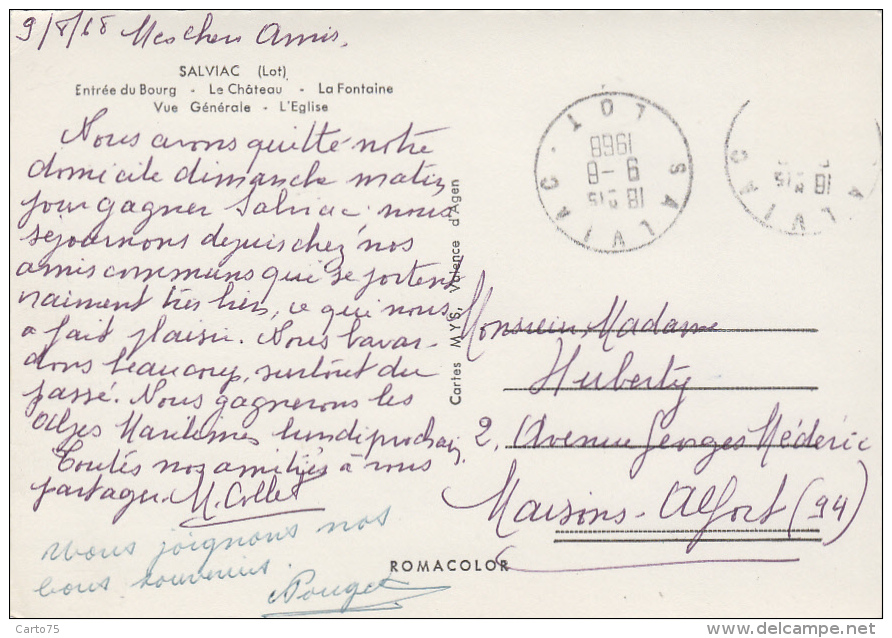 9/8/68 Mes chers Amis.
SALVIAC (Lot)
Entrée du Bourg - Le Château - La Fontaine
Vue Générale - L'Eglise
Nous avons quitté notre
domicile dimanche matin
pour gagner Salviac. nous
séjournons depuis chez nos
amis communs qui se portent
vraiment très bien, ce qui nous
a fait plaisir. Nous bavar-
dons beaucoup, surtout du
passé. Nous gagnerons les
Alpes Maritimes lundi prochain.
Toutes nos amitiés à vous
partager. M. Collet
Nous joignons nos
bons souvenirs.
Pouget
Cartes MYS, Valence d'Agen
ROMACOLOR
SALVIAC · LOT
18 H 15
9-8
1968
SALVIAC
18 H 15
Monsieur, Madame
Huberty
2, Avenue Georges Médéric
Maisons-Alfort (94)
Carto75
delcampe.net